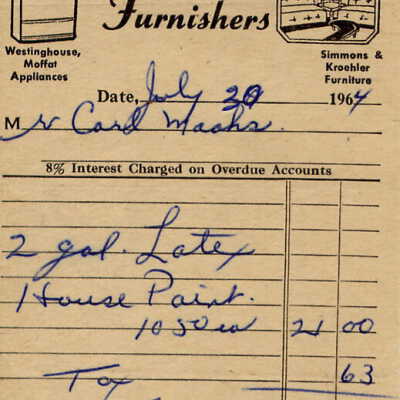 Furnishers
Westinghouse,
Moffat
Appliances
Simmons &
Kroehler
Furniture
Date, July 30 1964
Mr Carl Maahs.
8% Interest Charged on Overdue Accounts
2 gal. Latex
House Paint.
10 50 ea 21 00
Tax 63